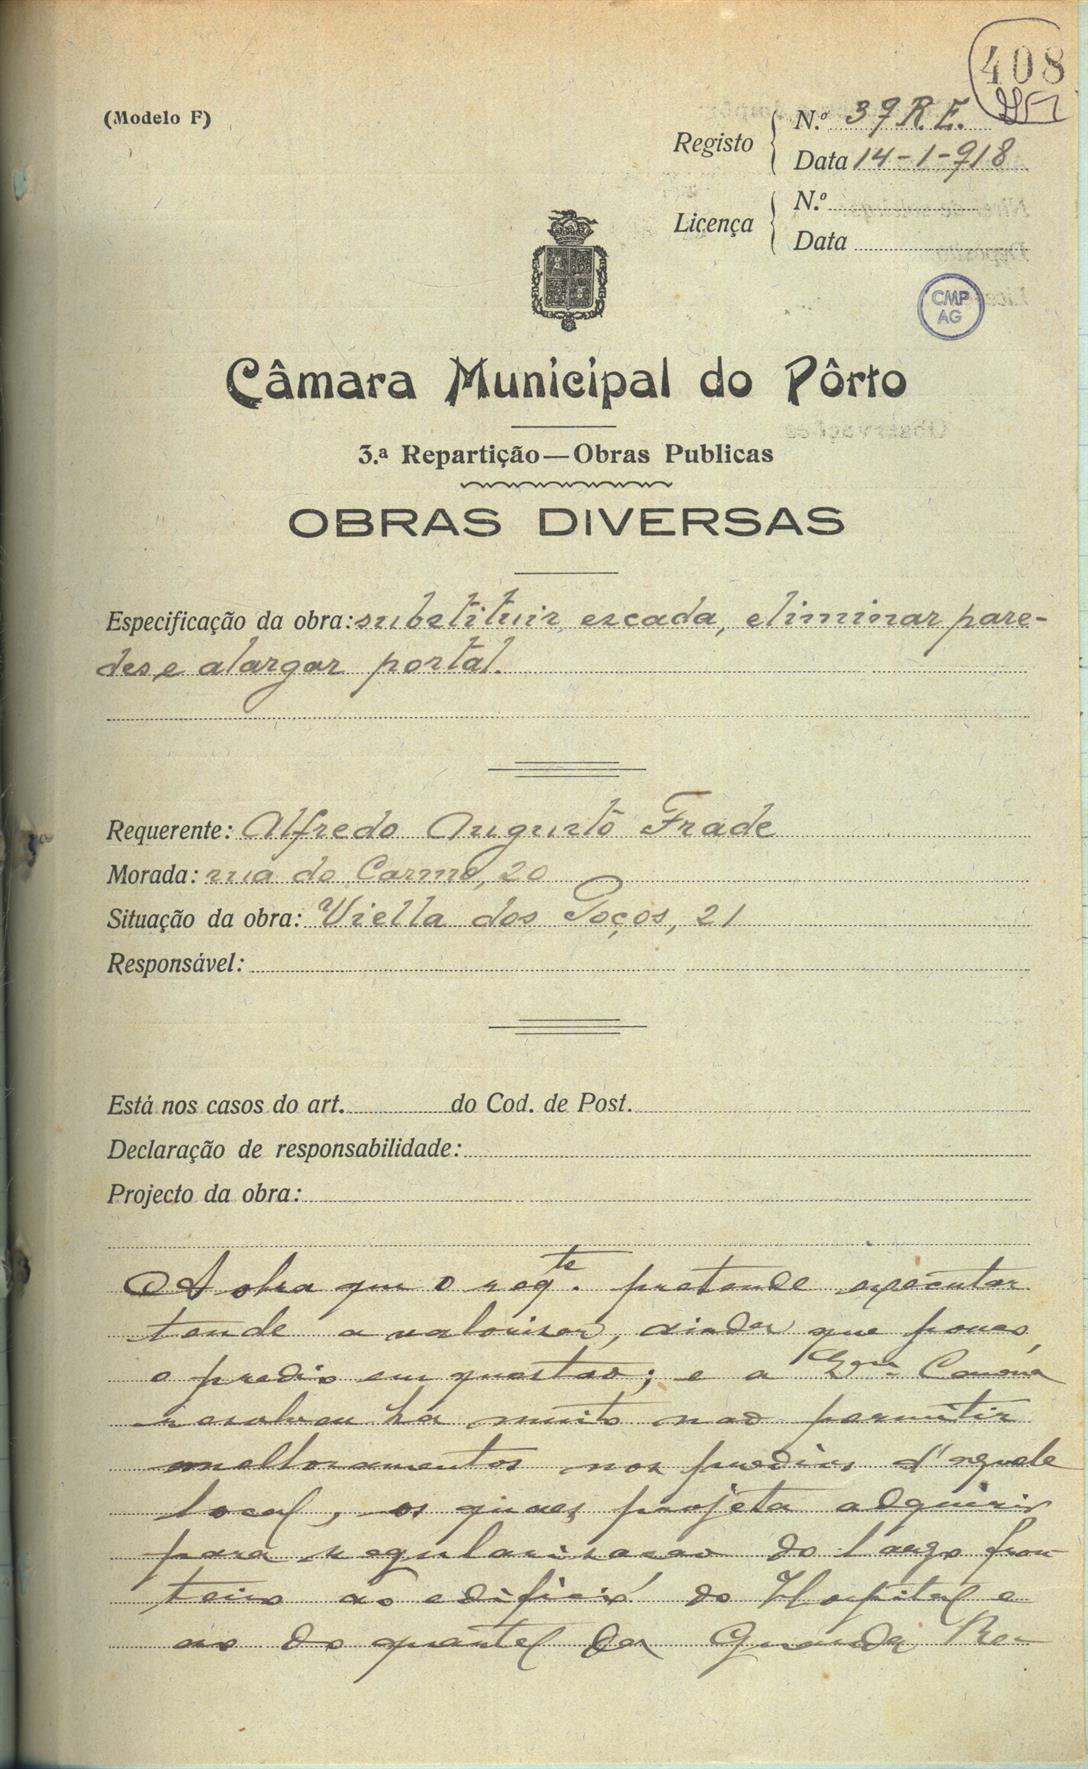 408
(Modelo F)
Registo
N.º 37 R. E.
Data 14-1-918
Licença
N.º
Data
CMP
AG
Câmara Municipal do Pôrto
3.ª Repartição—Obras Publicas
OBRAS DIVERSAS
Especificação da obra: substituir escada, eliminar pare-
des e alargar portal.
Requerente: Alfredo Augusto Frade
Morada: rua do Carmo, 20
Situação da obra: Viella dos Poços, 21
Responsável:
Está nos casos do art. do Cod. de Post.
Declaração de responsabilidade:
Projecto da obra:
A obra que o reqte. pretende executar
tende a valorisar, ainda que pouco,
o predio em questão; e a Exma. Camara
resolveu ha muito nao permitir
melhoramentos nos predios d'aquele
local, os quaes projeta adquirir
para regularisacao do largo fron-
teiro ao edificio do Hospital e
ao do quartel da Guarda Re-